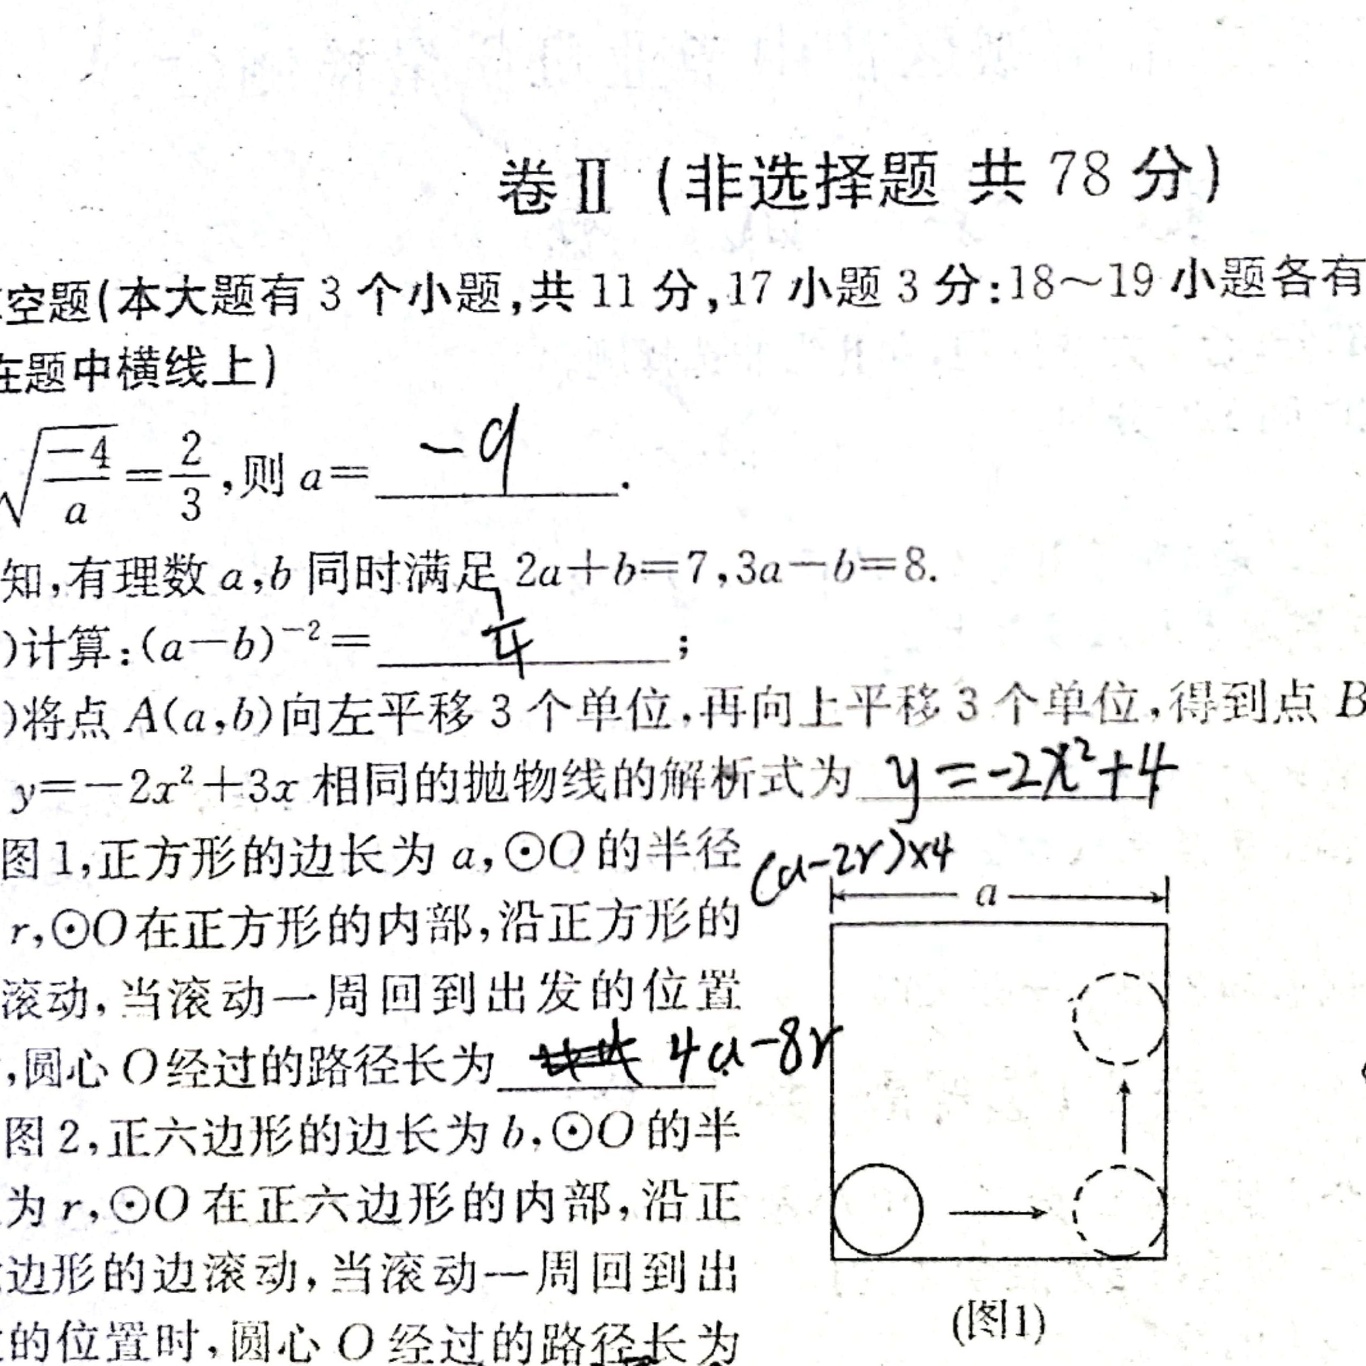 卷Ⅱ (非选择题 共 78 分)
空题(本大题有 3 个小题,共 11 分,17 小题 3 分:18~19 小题各有
在题中横线上)
√(-4/a)=2/3,则 a= -9 .
知,有理数 a,b 同时满足 2a+b=7,3a-b=8.
)计算:(a-b)⁻²= 1/4 ;
)将点 A(a,b)向左平移 3 个单位,再向上平移 3 个单位,得到点 B
y=-2x²+3x 相同的抛物线的解析式为 y=-2x²+4
图 1,正方形的边长为 a,⊙O 的半径
(a-2r)×4
a
r,⊙O 在正方形的内部,沿正方形的
滚动,当滚动一周回到出发的位置
,圆心 O 经过的路径长为 4a-8r
图 2,正六边形的边长为 b,⊙O 的半
为 r,⊙O 在正六边形的内部,沿正
边形的边滚动,当滚动一周回到出
的位置时,圆心 O 经过的路径长为
(图1)